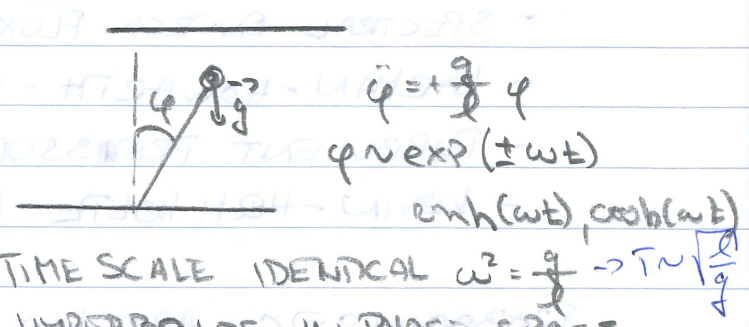 φ
g⃗
φ̈ = + g/l φ
φ ~ exp (± ωt)
sinh(ωt), cosh(ωt)
TIME SCALE IDENTICAL ω² = g/l -> T ~ √(l/g)
IN PHASE SPACE